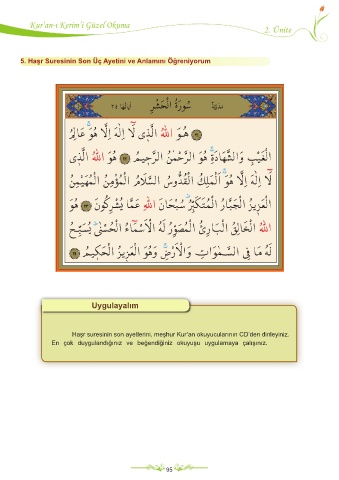 Kur'an-ı Kerim'i Güzel Okuma
2. Ünite
5. Haşr Suresinin Son Üç Ayetini ve Anlamını Öğreniyorum
مدنية سُورَةُ الْحَشْرِ آياتها ٢٤
هُوَ اللّٰهُ الَّذ۪ي لَٓا اِلٰهَ اِلَّا هُوَۚ عَالِمُ
الْغَيْبِ وَالشَّهَادَةِۚ هُوَ الرَّحْمٰنُ الرَّح۪يمُ ﴿٢٢﴾ هُوَ اللّٰهُ الَّذ۪ي
لَٓا اِلٰهَ اِلَّا هُوَۚ اَلْمَلِكُ الْقُدُّوسُ السَّلَامُ الْمُؤْمِنُ الْمُهَيْمِنُ
الْعَز۪يزُ الْجَبَّارُ الْمُتَكَبِّرُۜ سُبْحَانَ اللّٰهِ عَمَّا يُشْرِكُونَ ﴿٢٣﴾ هُوَ
اللّٰهُ الْخَالِقُ الْبَارِئُ الْمُصَوِّرُ لَهُ الْاَسْمَٓاءُ الْحُسْنٰىۜ يُسَبِّحُ
لَهُ مَا فِي السَّمٰوَاتِ وَالْاَرْضِۚ وَهُوَ الْعَز۪يزُ الْحَك۪يمُ ﴿٢٤﴾
Uygulayalım
Haşr suresinin son ayetlerini, meşhur Kur'an okuyucularının CD'den dinleyiniz.
En çok duygulandığınız ve beğendiğiniz okuyuşu uygulamaya çalışınız.
95